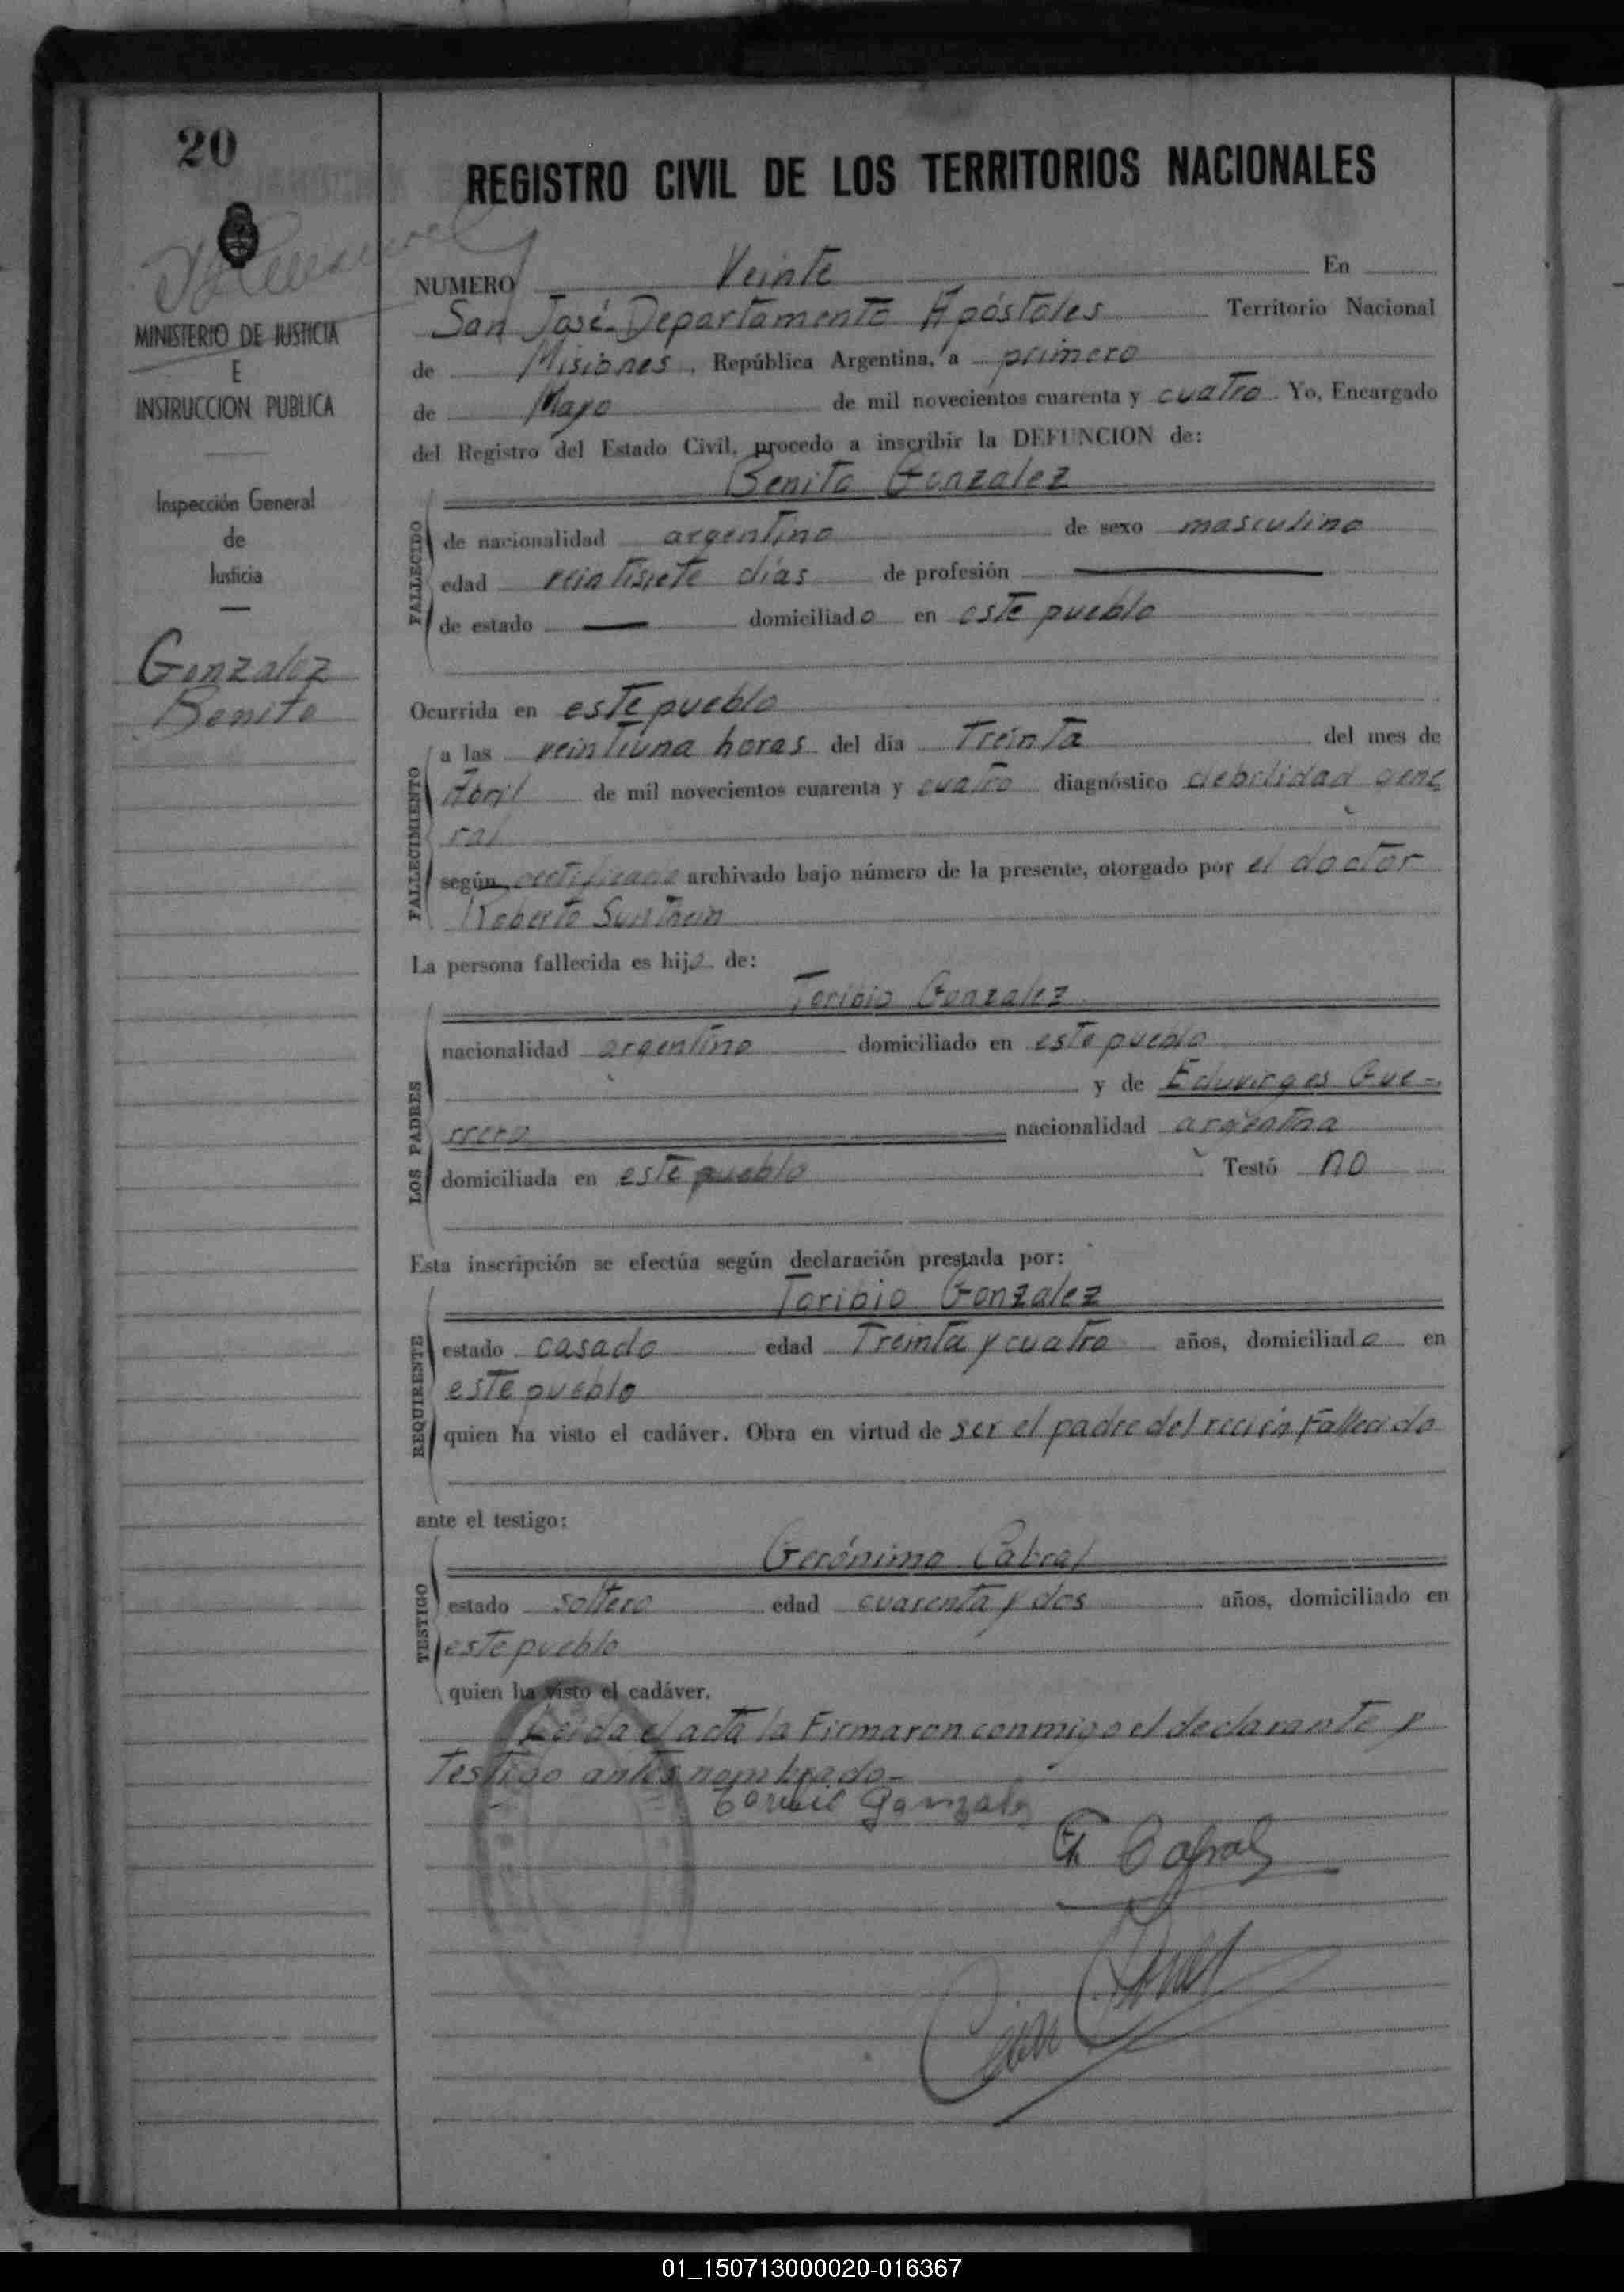 20
REGISTRO CIVIL DE LOS TERRITORIOS NACIONALES
MINISTERIO DE JUSTICIA
E
INSTRUCCION PUBLICA
Inspección General
de
Justicia
Gonzalez
Benito
NUMERO Veinte En
San José Departamento Apóstoles Territorio Nacional
de Misiones, República Argentina, a primero
de Mayo de mil novecientos cuarenta y cuatro. Yo, Encargado
del Registro del Estado Civil, procedo a inscribir la DEFUNCION de:
Benito Gonzalez
FALLECIDO
de nacionalidad argentino de sexo masculino
edad veintisiete días de profesión
de estado domiciliado en este pueblo
Ocurrida en este pueblo
FALLECIMIENTO
a las veintiuna horas del día Treinta del mes de
Abril de mil novecientos cuarenta y cuatro diagnóstico debilidad gene
ral
según certificado archivado bajo número de la presente, otorgado por el doctor
Roberto
La persona fallecida es hijo de:
Toribio Gonzalez
LOS PADRES
nacionalidad argentino domiciliado en este pueblo
y de Eduvirges Gue-
rrero nacionalidad argentina
domiciliada en este pueblo Testó no
Esta inscripción se efectúa según declaración prestada por:
Toribio Gonzalez
REQUIRENTE
estado casado edad Treinta y cuatro años, domiciliado en
este pueblo
quien ha visto el cadáver. Obra en virtud de ser el padre del recién Fallecido
ante el testigo:
Gerónimo Cabral
TESTIGO
estado soltero edad cuarenta y dos años, domiciliado en
este pueblo
quien ha visto el cadáver.
Leída el acta la Firmaron conmigo el declarante y
Testigo antes nombrado-
Toribio Gonzalez
G Cabral
01_150713000020-016367